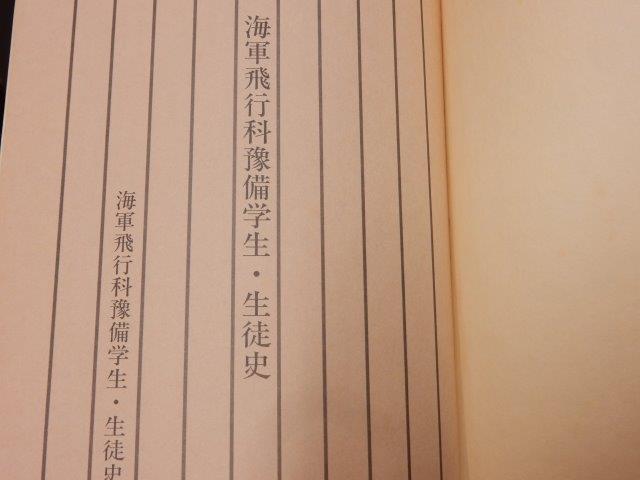 海軍飛行科豫備学生・生徒史
海軍飛行科豫備学生・生徒史